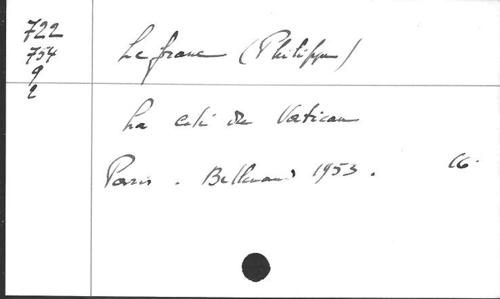 722
754
9
2
Lefranc (Philippe)
La cité du Vatican
Paris . Bellenand 1953 . 16.